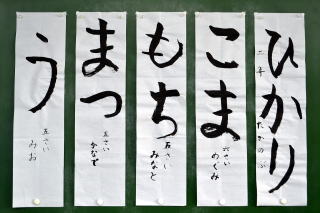 ひかり
二年 たかのぶ
こま
六さい めぐみ
もち
五さい みなと
まつ
五さい かなで
う
五さい みお